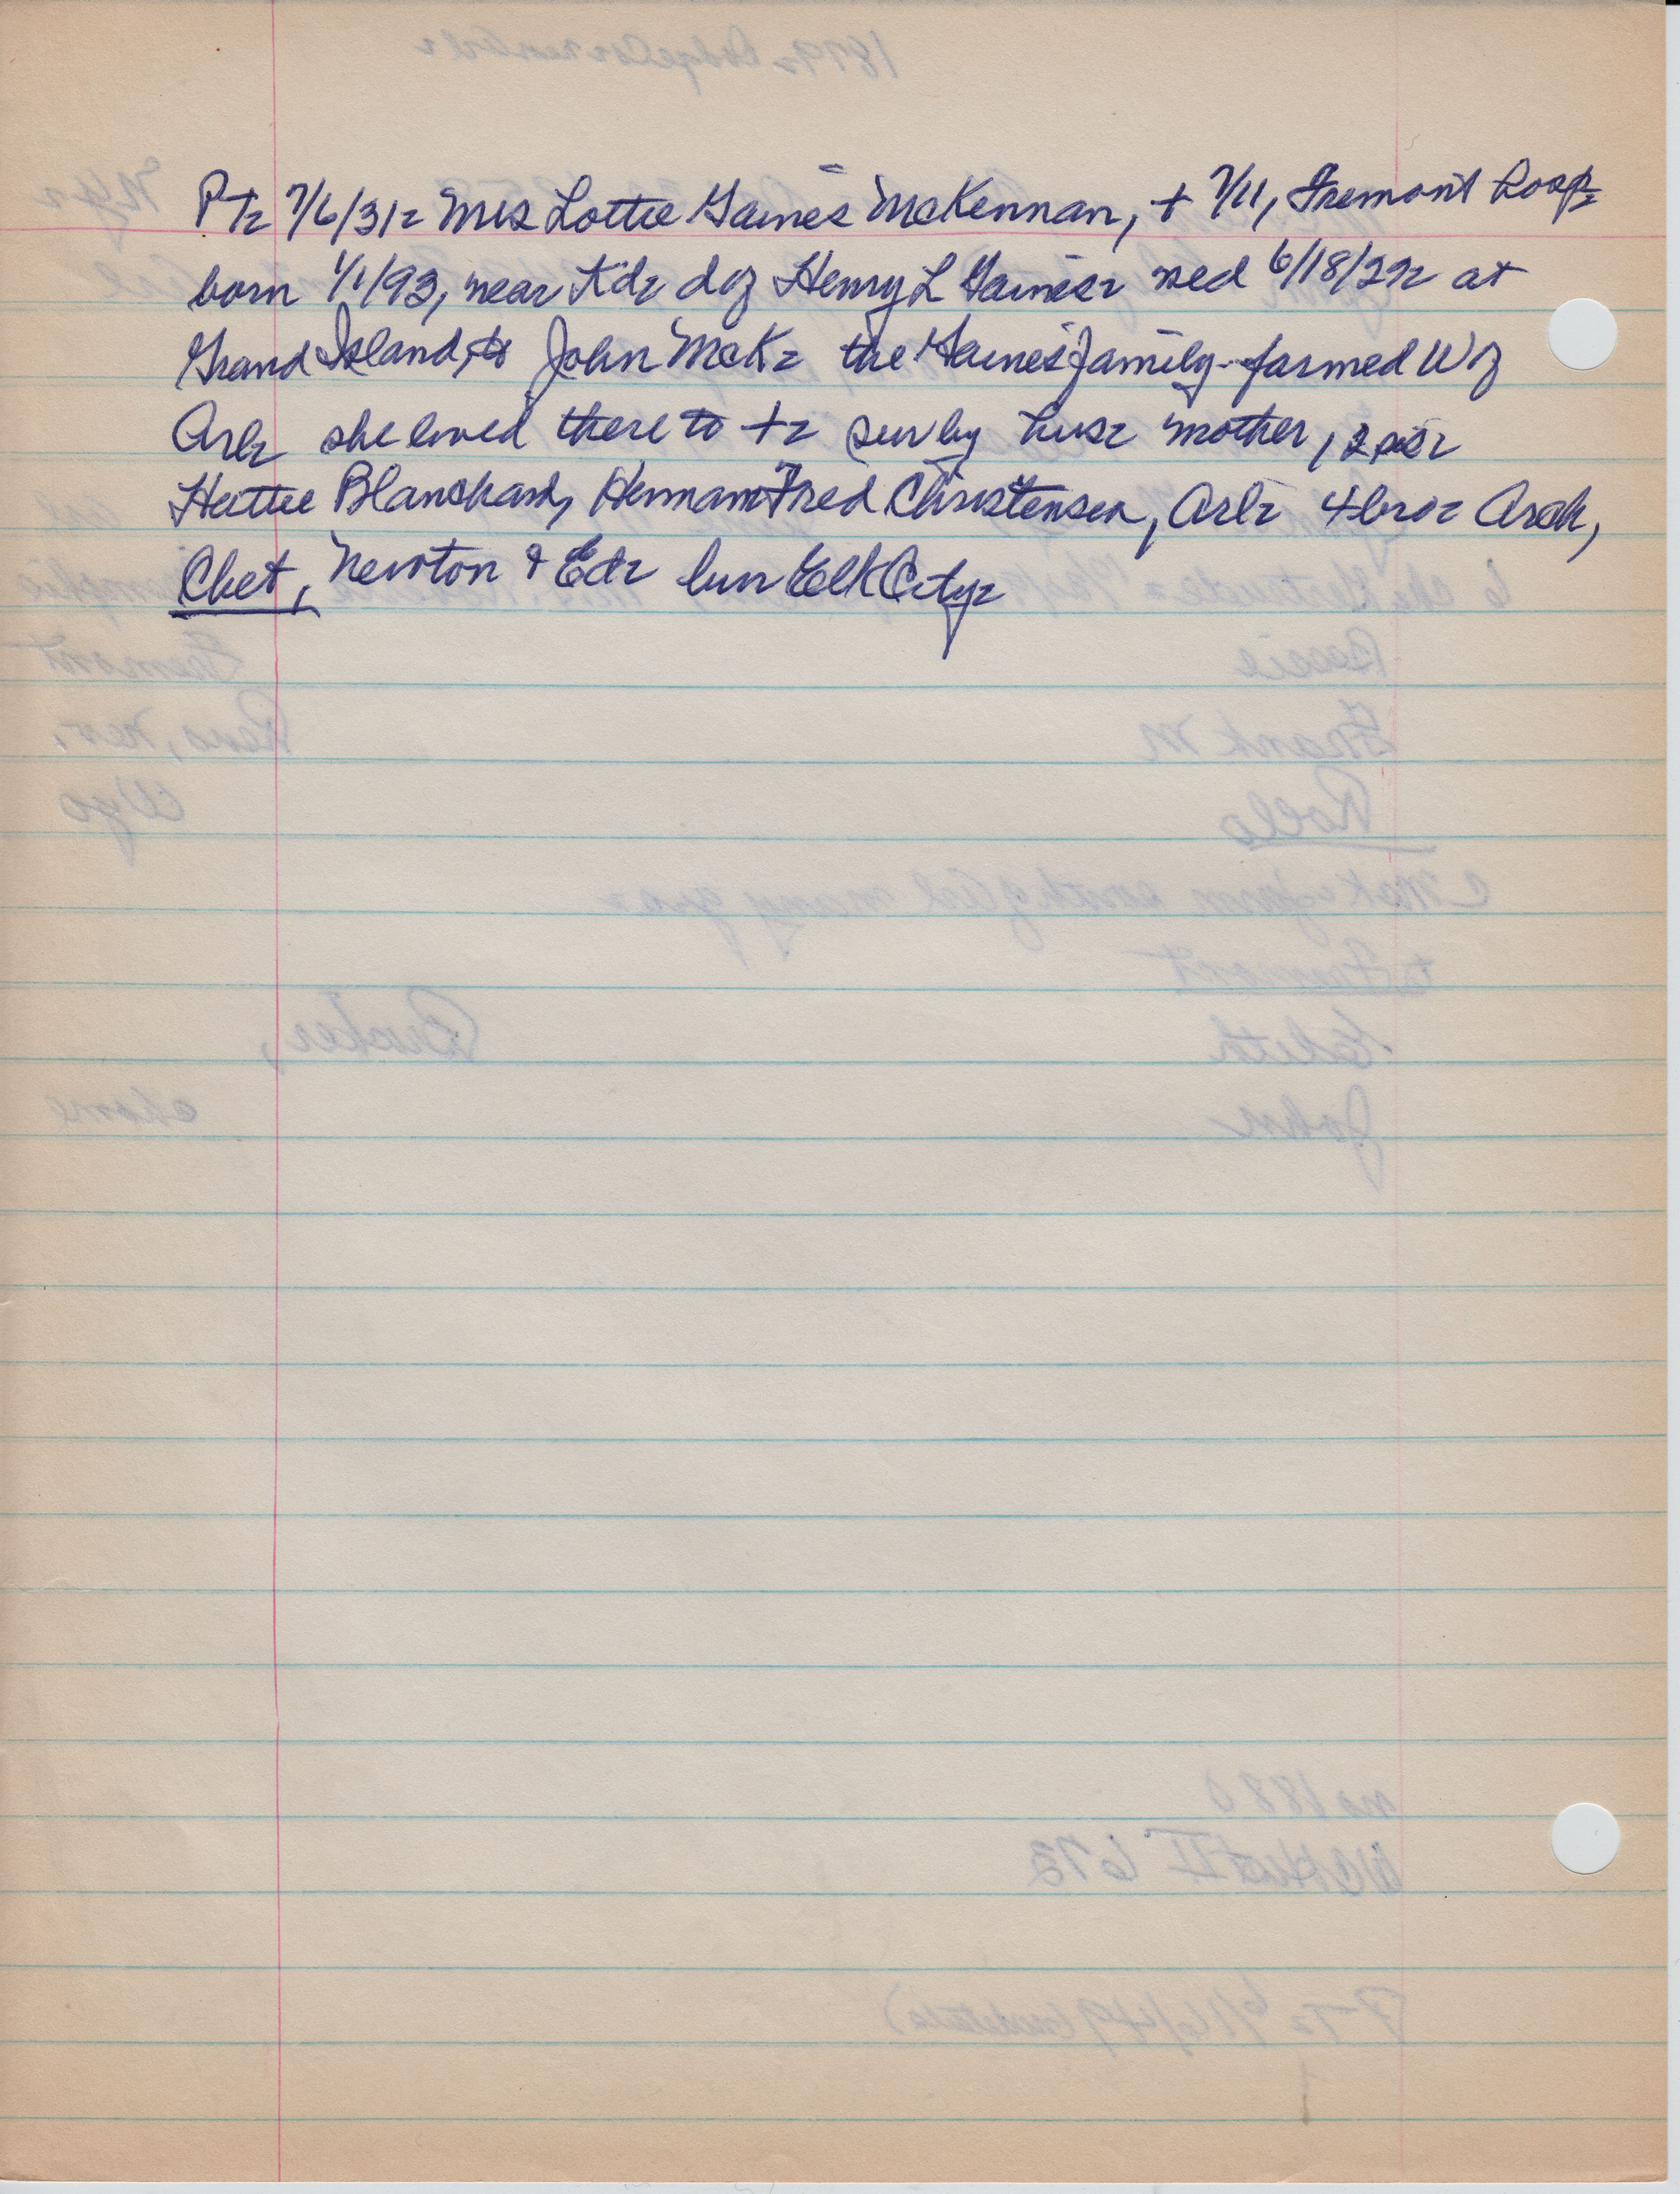 PTz 7/6/31z Mrs Lottie Gaines McKennan, + 7/11, Fremont hospz
born 1/1/93, near Kdz d of Henry L Gainesz med 6/18/29z at
Grand Island, to John McKz the Gaines family farmed W of
Arlz she lived there to +z sur by husz mother, 2 sisz
Hattie Blanchard, Herman Fred Christensen, Arlz 4 broz Arch,
Chet, Newton & Edz bur Elk Cityz